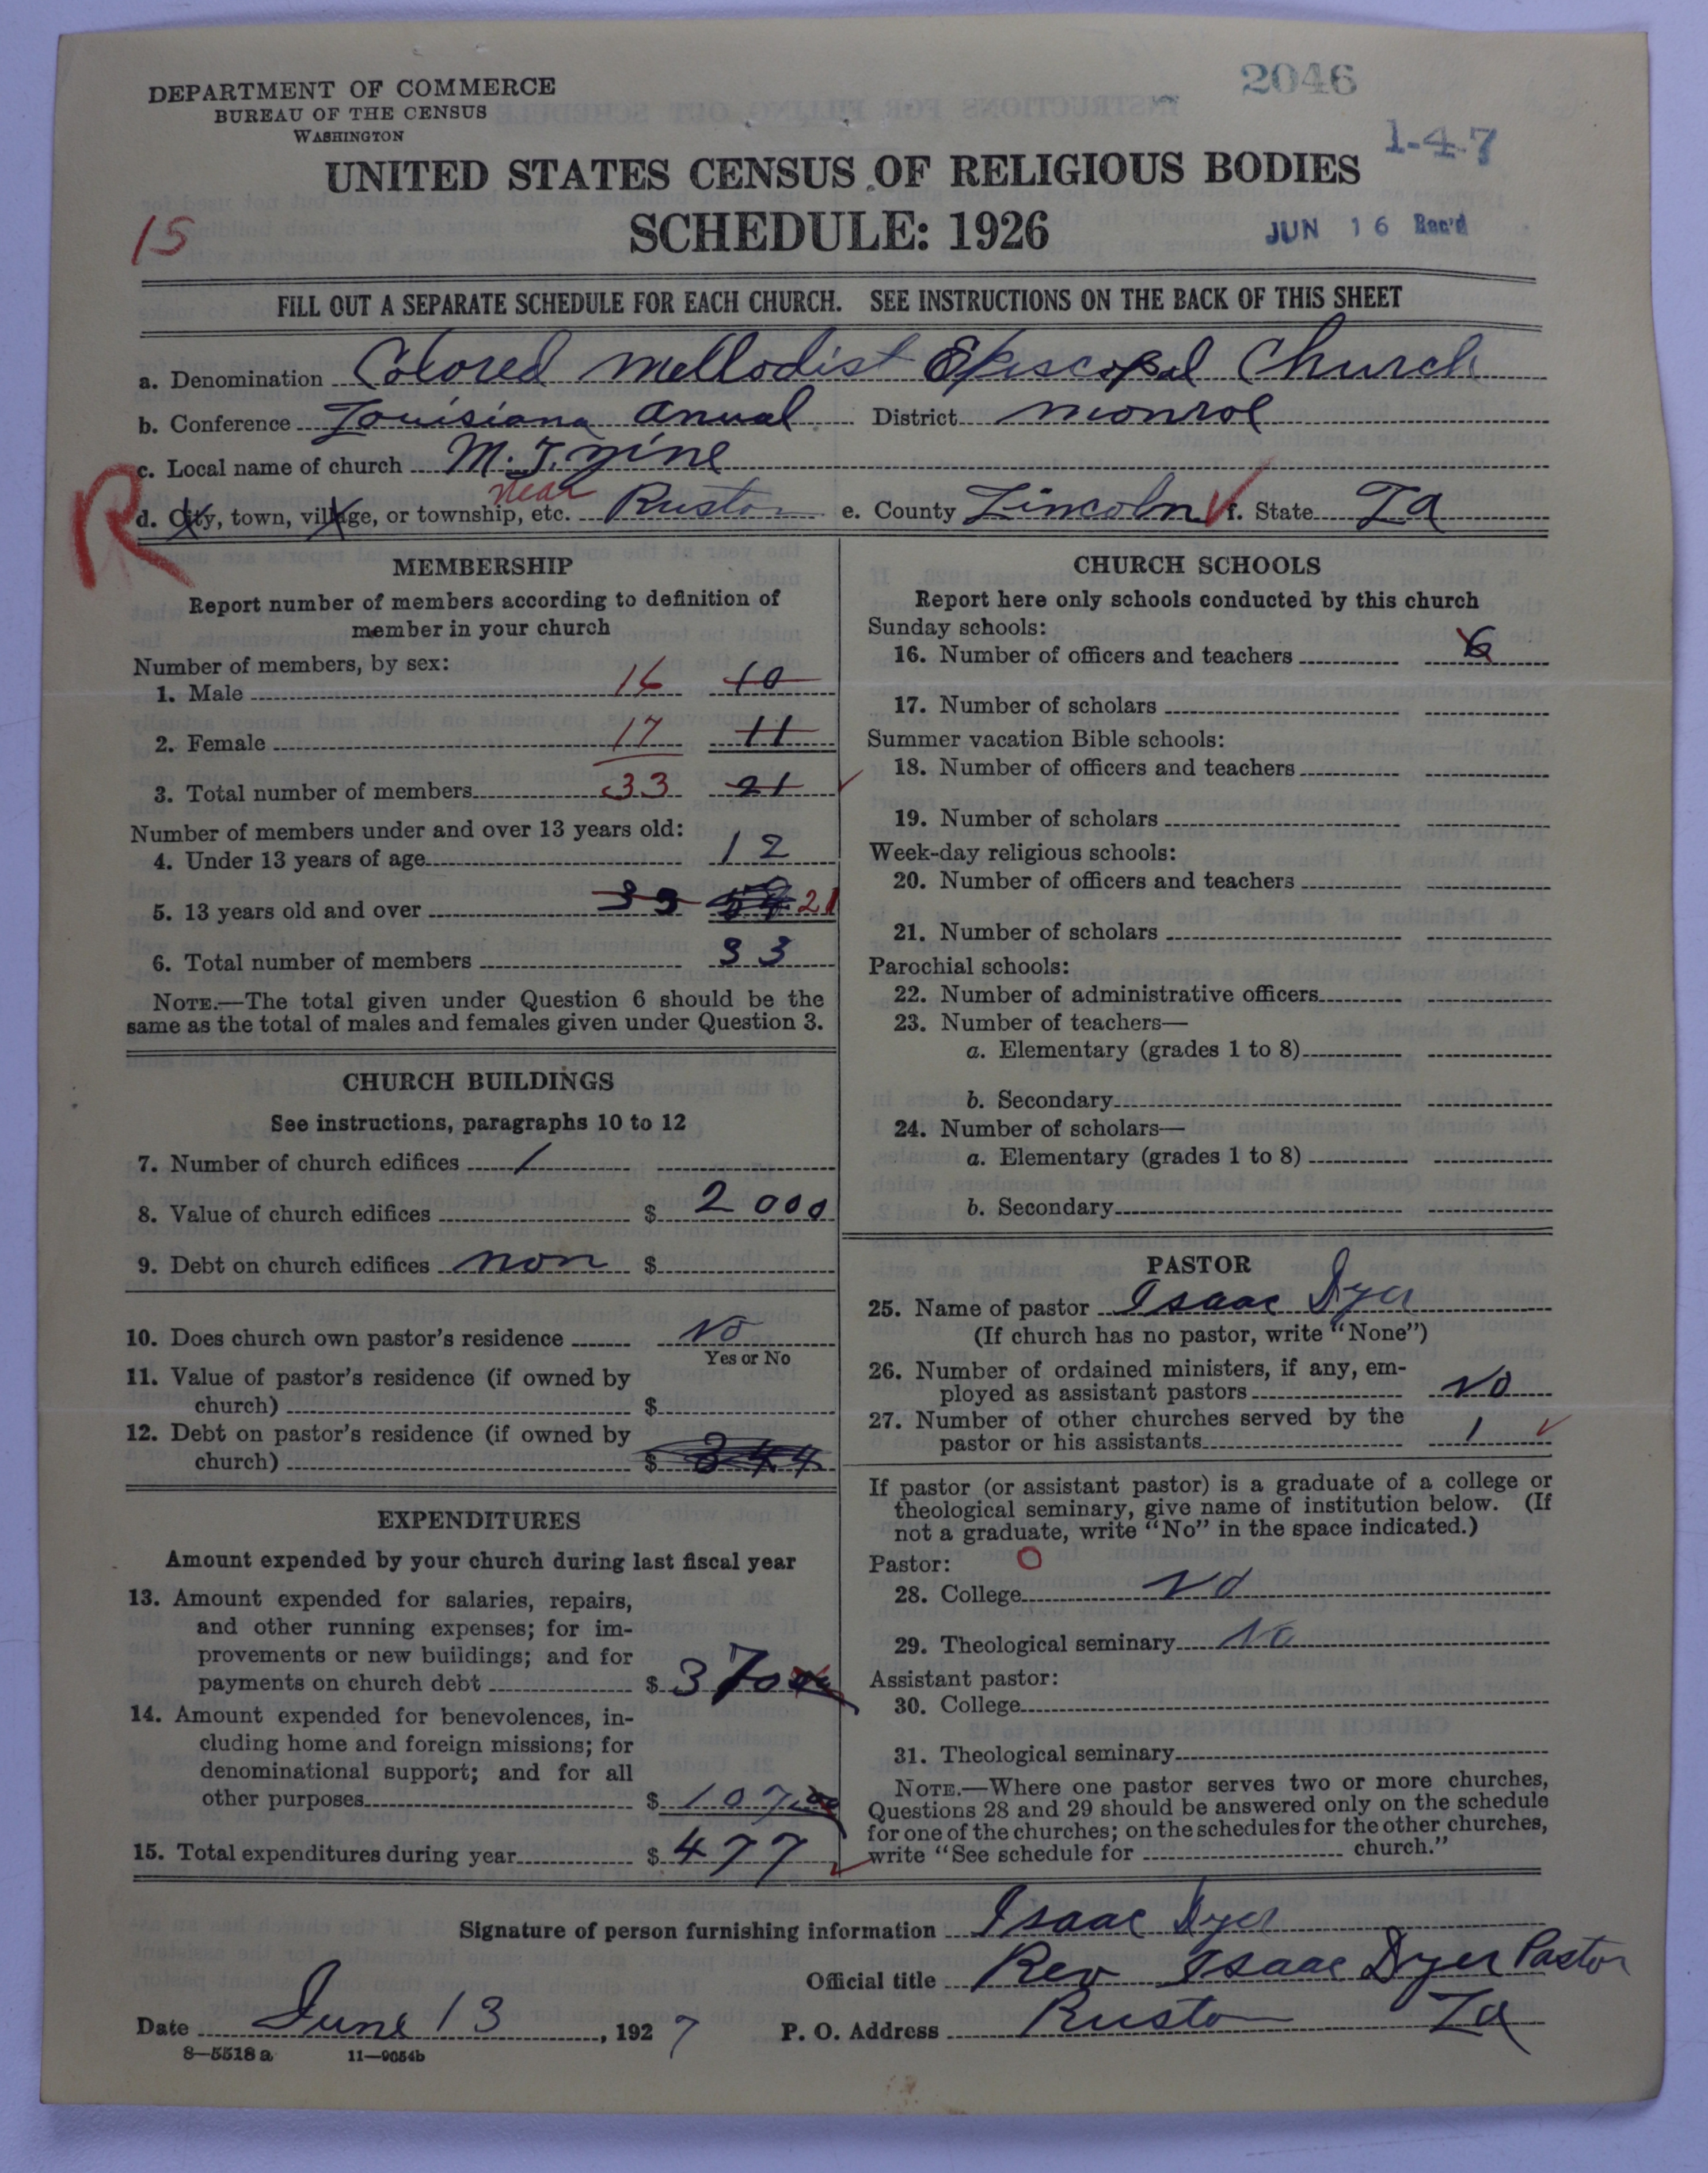 2046
DEPARTMENT OF COMMERCE
BUREAU OF THE CENSUS
WASHINGTON
1-4-7
UNITED STATES CENSUS OF RELIGIOUS BODIES
SCHEDULE: 1926
15
JUN 16 Rec'd
FILL OUT A SEPARATE SCHEDULE FOR EACH CHURCH. SEE INSTRUCTIONS ON THE BACK OF THIS SHEET
a. Denomination Colored Methodist Episcopal Church
b. Conference Louisiana Anual District Monroe
c. Local name of church M. T. Zine
R
d. City, town, village, or township, etc. near Ruston e. County Lincoln f. State La
MEMBERSHIP
Report number of members according to definition of
member in your church
Number of members, by sex:
1. Male 16 10
2. Female 17 11
3. Total number of members 33 21
Number of members under and over 13 years old:
4. Under 13 years of age 12
5. 13 years old and over 33 21
6. Total number of members 33
NOTE.—The total given under Question 6 should be the
same as the total of males and females given under Question 3.
CHURCH BUILDINGS
See instructions, paragraphs 10 to 12
7. Number of church edifices 1
8. Value of church edifices $ 2000
9. Debt on church edifices non $
10. Does church own pastor's residence No
Yes or No
11. Value of pastor's residence (if owned by
church) $
12. Debt on pastor's residence (if owned by
church) $ 344
EXPENDITURES
Amount expended by your church during last fiscal year
13. Amount expended for salaries, repairs,
and other running expenses; for im-
provements or new buildings; and for
payments on church debt $ 370
14. Amount expended for benevolences, in-
cluding home and foreign missions; for
denominational support; and for all
other purposes $ 107.00
15. Total expenditures during year $ 477
CHURCH SCHOOLS
Report here only schools conducted by this church
Sunday schools:
16. Number of officers and teachers 6
17. Number of scholars
Summer vacation Bible schools:
18. Number of officers and teachers
19. Number of scholars
Week-day religious schools:
20. Number of officers and teachers
21. Number of scholars
Parochial schools:
22. Number of administrative officers
23. Number of teachers—
a. Elementary (grades 1 to 8)
b. Secondary
24. Number of scholars—
a. Elementary (grades 1 to 8)
b. Secondary
PASTOR
25. Name of pastor Isaac Dyer
(If church has no pastor, write "None")
26. Number of ordained ministers, if any, em-
ployed as assistant pastors No
27. Number of other churches served by the
pastor or his assistants 1
If pastor (or assistant pastor) is a graduate of a college or
theological seminary, give name of institution below. (If
not a graduate, write "No" in the space indicated.)
Pastor: O
28. College No
29. Theological seminary No
Assistant pastor:
30. College
31. Theological seminary
NOTE.—Where one pastor serves two or more churches,
Questions 28 and 29 should be answered only on the schedule
for one of the churches; on the schedules for the other churches,
write "See schedule for church."
Signature of person furnishing information Isaac Dyer
Official title Rev Isaac Dyer Pastor
Date June 13, 1927 P. O. Address Ruston La
8—5518 a 11—9054b